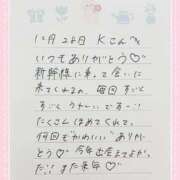 12月28日 Kさんへ
いつもありがとう♡
新幹線に乗って会いに
来てくれるの、毎回すごく
すごくうれしいですー!!
たくさんほめてくれて、
何回も"かわいい"ありが
とう♡ 今年出会えてよかっ
た!! また来年♡